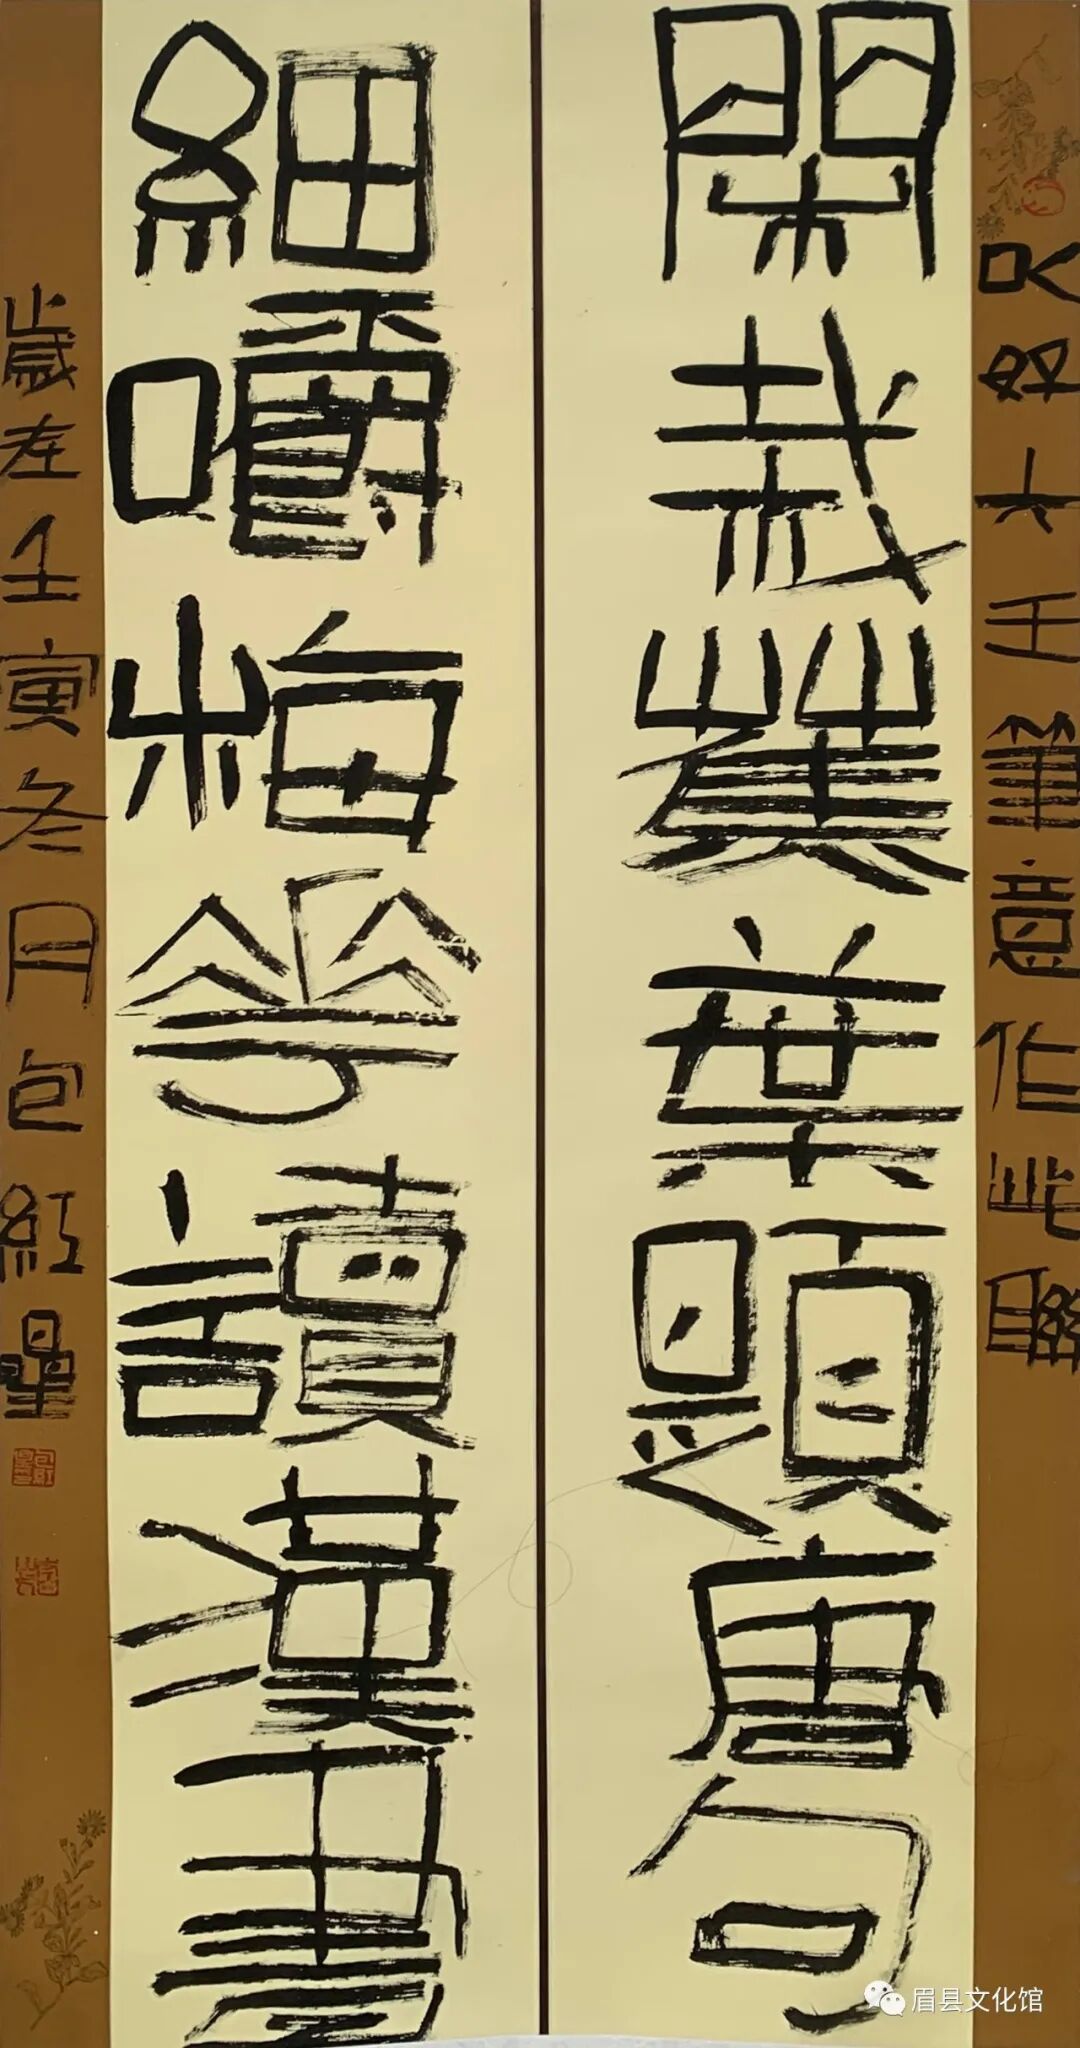 以好大王筆意作此聯
閑栽蕉葉題唐句
細嚼梅華讀漢書
歲在壬寅冬月包紅星
眉县文化馆